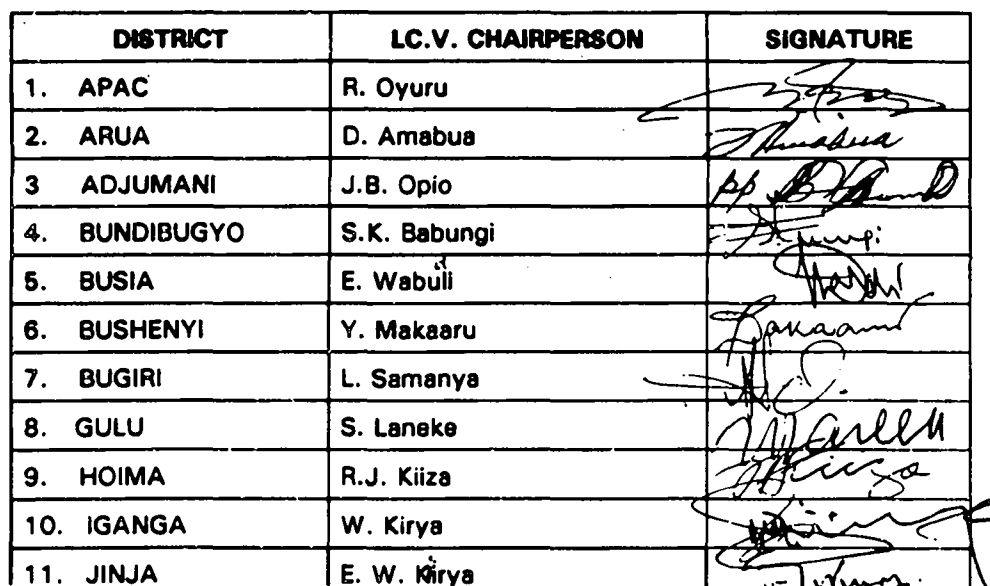 DISTRICT LC.V. CHAIRPERSON SIGNATURE
1. APAC R. Oyuru
2. ARUA D. Amabua
3 ADJUMANI J.B. Opio pp
4. BUNDIBUGYO S.K. Babungi
5. BUSIA E. Wabuli
6. BUSHENYI Y. Makaaru
7. BUGIRI L. Samanya
8. GULU S. Laneke
9. HOIMA R.J. Kiiza
10. IGANGA W. Kirya
11. JINJA E. W. Kirya